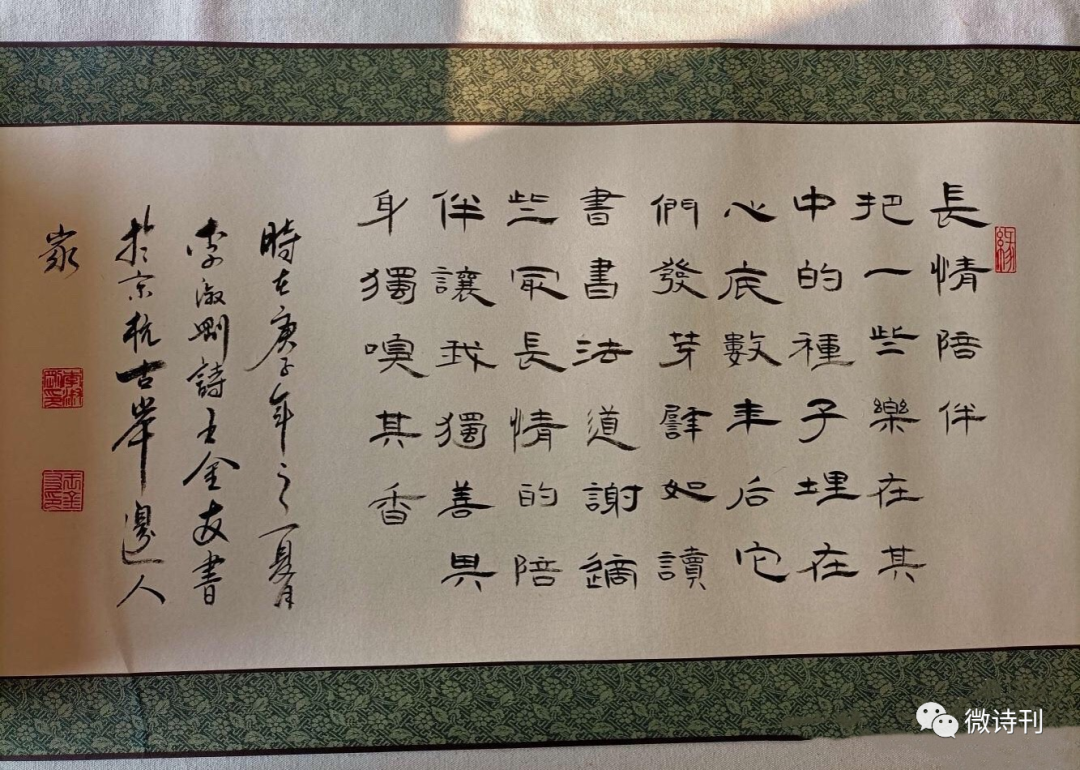 長情陪伴
把一些樂在其
中的種子埋在
心底數年后它
們發芽譬如讀
書書法道謝這
些最長情的陪
伴讓我獨善其
身獨嗅其香
時在庚子年之夏月
李淑剛詩王金友書
於京杭古岸邊人
家
微诗刊